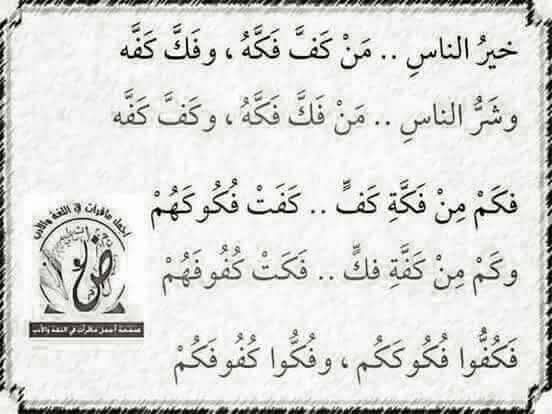 خيرُ الناسِ .. مَنْ كَفَّ فَكَّهُ ، وفَكَّ كَفَّه
وشَرُّ الناسِ .. مَنْ فَكَّ فَكَّهُ ، وكَفَّ كَفَّه
فكَمْ مِنْ فَكَّةِ كَفٍّ .. كَفَتْ فُكُوكَهُمْ
وكَمْ مِنْ كَفَّةِ فكٍّ .. فَكَتْ كُفُوفَهُمْ
فَكُفُّوا فُكُوكَكُم ، وفُكُّوا كُفُوفَكُمْ
أجمل ماقرأت في اللغة والأدب
صفحة أجمل ماقرأت في اللغة والأدب